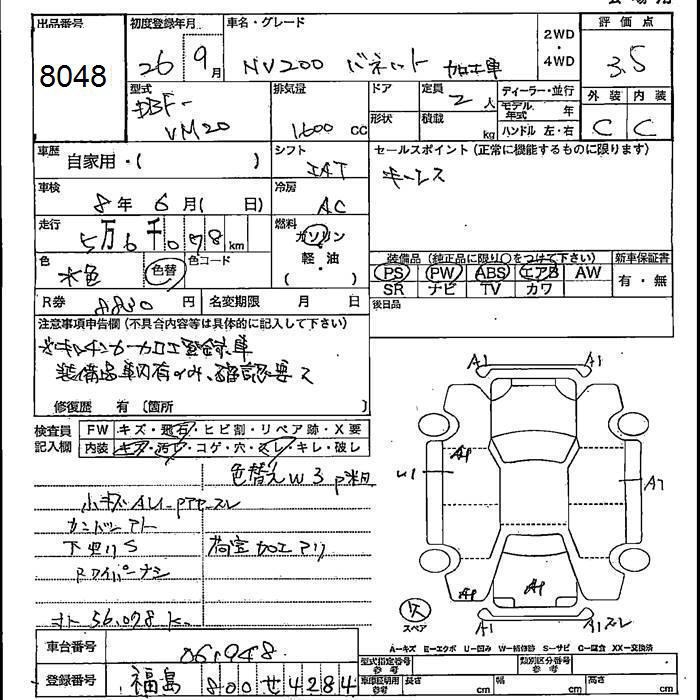 出品番号
8048
初度登録年月
26 9月
車名・グレード
NV200 バネット 加工車
2WD
・
4WD
評価点
3.5
型式
DBF-
VM20
排気量
1600 cc
ドア
形状
定員
2人
積載
kg
ディーラー・並行
モデル年式 年
ハンドル 左・右
外装 内装
C C
車歴
自家用・( )
シフト
IAT
セールスポイント(正常に機能するものに限ります)
キーレス
車検
8年 6月( 日)
冷房
AC
走行
5万6千078km
燃料
ガソリン
軽・油
( )
色
水色
色替
色コード
装備品(純正品に限り○をつけて下さい)
PS PW ABS エアB AW
SR ナビ TV カワ
新車保証書
有・無
R券
8830円
名変期限 月 日
後日品
注意事項申告欄(不具合内容等は具体的に記入して下さい)
※キャンピングカー加工登録車
装備品車内有のみ、確認要ス
修復歴 有〔箇所 〕
検査員
記入欄
FW キズ・飛石・ヒビ割・リペア跡・X要
内装 キズ・汚れ・コゲ・穴・スレ・キレ・破し
色替えW3P
小キズAU-PTP-スレ
カンバンアト
下回りS
荷室加工アリ
Rワイパーナシ
メーター56,078k
A1 A1
A1
U1
A2
A1
A1
スペア
A1 A1スレ
A-キズ E-エクボ U-凹み W-補修跡 S-サビ C-腐食 XX-交換済
車台番号
061948
登録番号
福島 800せ4284
型式指定番号
参考
類別区分番号
参考
車庫証明用
参考
長さ cm
幅 cm
高さ cm